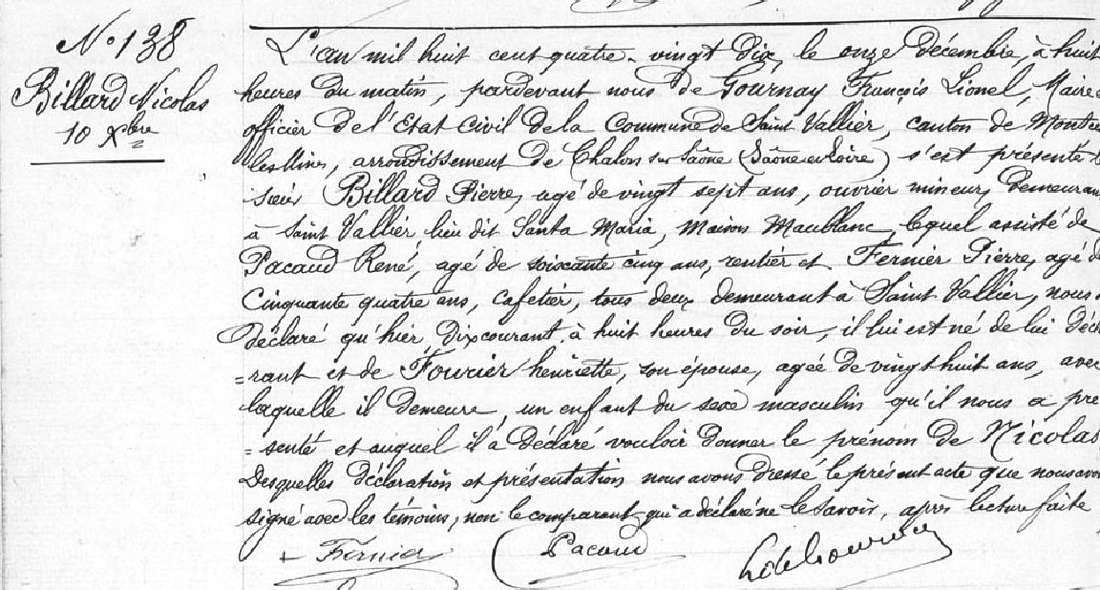 N° 138
Billard Nicolas
10 Xbre
L'an mil huit cent quatre-vingt dix, le onze décembre, à huit
heures du matin, pardevant nous De Gournay François Lionel, Maire
officier de l'Etat Civil de la Commune de Saint Vallier, canton de Montce
les Mines, arrondissement de Chalon sur Saône (Saône et Loire) s'est présenté
sieur Billard Pierre, agé de vingt sept ans, ouvrier mineur, demeurant
à Saint Vallier lieu dit Santa Maria, Maison Maublanc, lequel assisté de
Pacaud René, agé de soixante cinq ans, rentier et Fernier Pierre, agé d
Cinquante quatre ans, cafetier, tous deux demeurant à Saint Vallier, nous
déclaré qu'hier, dix courant, à huit heures du soir, il lui est né de lui décla
=rant et de Fourier henriette, son épouse, agée de vingt huit ans, avec
laquelle il demeure, un enfant du sexe masculin qu'il nous a pré
=senté et auquel il a déclaré vouloir donner le prénom de Nicolas
Desquelles déclaration et présentation nous avons dressé le présent acte que nous avon
signé avec les témoins, non le comparant qui a déclaré ne le savoir, après lecture faite
Fernier Pacaud L de Gournay